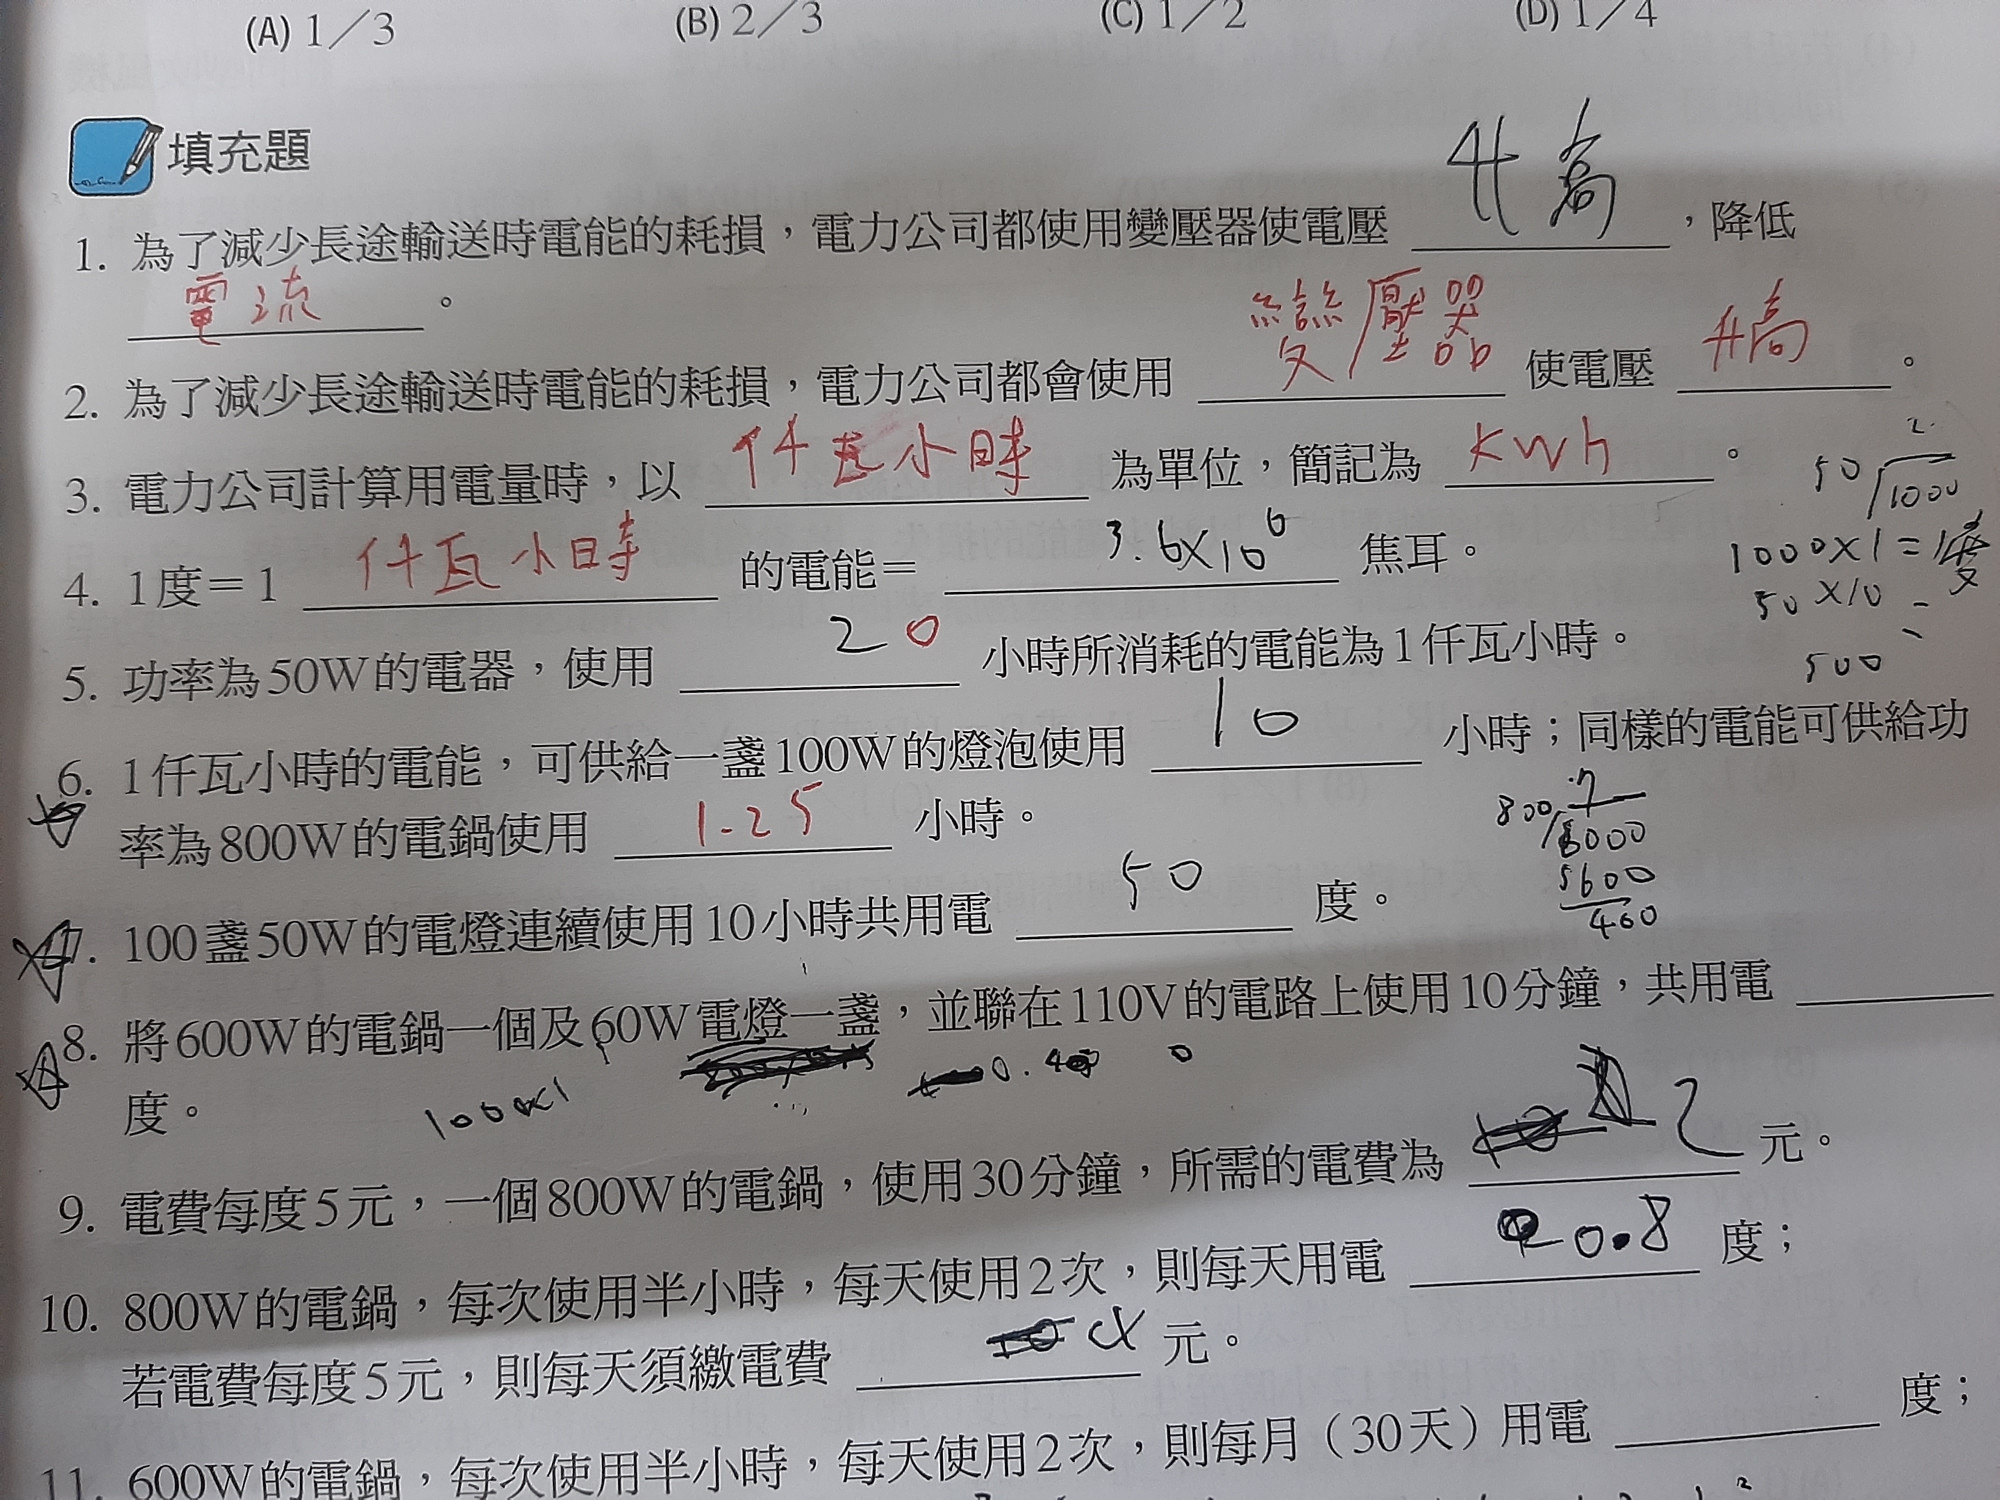 (A) 1／3 (B) 2／3 (C) 1／2 (D) 1／4
填充題
1. 為了減少長途輸送時電能的耗損，電力公司都使用變壓器使電壓 升高 ，降低
電流 。
2. 為了減少長途輸送時電能的耗損，電力公司都會使用 變壓器 使電壓 升高 。
3. 電力公司計算用電量時，以 仟瓦小時 為單位，簡記為 KWh 。
4. 1度＝1 仟瓦小時 的電能＝ 3.6×10⁶ 焦耳。
5. 功率為50W的電器，使用 20 小時所消耗的電能為1仟瓦小時。
2
50 1000
1000×1=1度
50×10
500
6. 1仟瓦小時的電能，可供給一盞100W的燈泡使用 10 小時；同樣的電能可供給功
率為800W的電鍋使用 1.25 小時。
800 000
5600
400
7. 100盞50W的電燈連續使用10小時共用電 50 度。
8. 將600W的電鍋一個及60W電燈一盞，並聯在110V的電路上使用10分鐘，共用電
度。
9. 電費每度5元，一個800W的電鍋，使用30分鐘，所需的電費為 2 元。
10. 800W的電鍋，每次使用半小時，每天使用2次，則每天用電 0.8 度；
若電費每度5元，則每天須繳電費 元。
11. 600W的電鍋，每次使用半小時，每天使用2次，則每月（30天）用電 度；